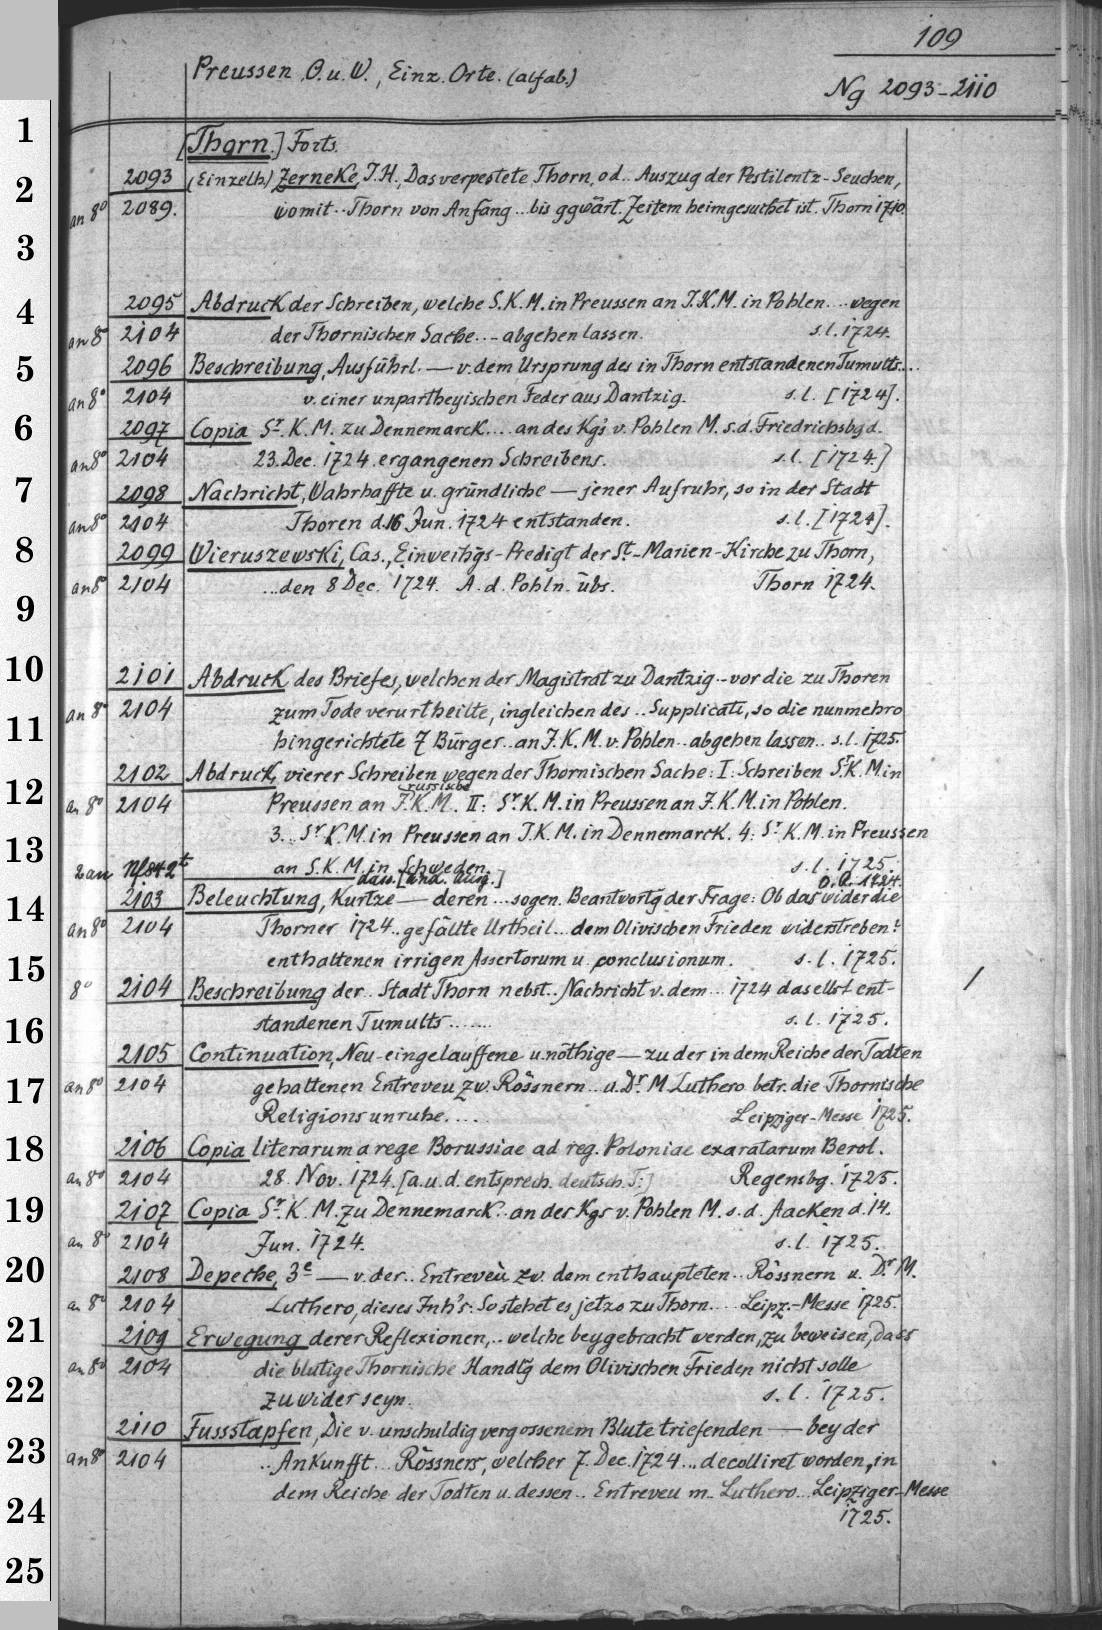 109
Preussen O. u. W., Einz. Orte. (alfab.)
Ng 2093-2110
[Thorn.] Forts.
2093 (Einzelh) Zerneke, J. H., Das verpestete Thorn, od.. Auszug der Pestilentz-Seuchen,
an 8° 2089. womit.. Thorn von Anfang... bis ggwärt. Zeitem heimgesuchet ist. Thorn 1710.
2095 Abdruck der Schreiben, welche S. K. M. in Preussen an J. K. M. in Pohlen.... wegen
an 8° 2104 der Thornischen Sache... abgehen lassen. s. l. 1724.
2096 Beschreibung, Ausführl. — v. dem Ursprung des in Thorn entstandenen Tumults....
an 8° 2104 v. einer unpartheyischen Feder aus Dantzig. s. l. [1724].
2097 Copia Sr. K. M. zu Dennemarck.... an des Kgs v. Pohlen M. s. d. Friedrichsbg d.
an 8° 2104 23. Dec. 1724 ergangenen Schreibens. s. l. [1724.]
2098 Nachricht, Wahrhaffte u. gründliche — jener Aufruhr, so in der Stadt
an 8° 2104 Thoren d. 16 Jun. 1724 entstanden. s. l. [1724].
2099 Wieruszewski, Cas., Einweihgs-Predigt der St.-Marien-Kirche zu Thorn,
an 8° 2104 ...den 8 Dec. 1724. A. d. Pohln. übs. Thorn 1724.
2101 Abdruck des Briefes, welchen der Magistrat zu Dantzig.. vor die zu Thoren
an 8° 2104 zum Tode verurtheilte, ingleichen des.. Supplicats, so die nunmehro
hingerichtete 7 Bürger.. an J. K. M. v. Pohlen.. abgehen lassen.. s. l. 1725.
2102 Abdruck, vierer Schreiben wegen der Thornischen Sache: I: Schreiben Sr. K. M. in
russische
an 8° 2104 Preussen an J. K. M. II: Sr. K. M. in Preussen an J. K. M. in Pohlen.
3... Sr K. M. in Preussen an J. K. M. in Dennemarck. 4: Sr K. M. in Preussen
2 an Nf 842t an S. K. M. in Schweden. s. l. 1725.
dass. [and. Ausg.] o. O. 1724.
2103 Beleuchtung, Kurtze — deren... sogen. Beantwortg der Frage: Ob das wider die
an 8° 2104 Thorner 1724.. gefällte Urtheil... dem Olivischen Frieden widerstreben?
enthaltenen irrigen Assertorum u. conclusionum. s. l. 1725.
8° 2104 Beschreibung der.. Stadt Thorn nebst.. Nachricht v. dem... 1724 daselbst ent- /
standenen Tumults....... s. l. 1725.
2105 Continuation, Neu-eingelauffene u. nöthige — zu der in dem Reiche der Todten
an 8° 2104 gehaltenen Entreveu zw. Rössnern... u. Dr. M Luthero betr. die Thornische
Religionsunruhe.... Leipziger-Messe 1725.
2106 Copia literarum a rege Borussiae ad reg. Poloniae exaratarum Berol.
an 8° 2104 28. Nov. 1724. [a. u. d. entsprech. deutsch. T:] Regensbg. 1725.
2107 Copia Sr. K. M. zu Dennemarck.. an des Kgs v. Pohlen M. s. d. Aacken d. 14.
an 8° 2104 Jun. 1724. s. l. 1725.
2108 Depeche, 3e — v. der.. Entreveu zw. dem enthaupteten.. Rössnern u. Dr M.
an 8° 2104 Luthero, dieses Inh's: So stehet es jetzo zu Thorn.... Leipz.-Messe 1725.
2109 Erwegung derer Reflexionen,.. welche beygebracht werden, zu beweisen, dass
an 8° 2104 die blutige Thornische Handlg dem Olivischen Frieden nicht solle
zuwider seyn. s. l. 1725.
2110 Fussstapfen, Die v. unschuldig vergossenem Blute triefenden — bey der
an 8° 2104 .. Ankunfft... Rössners, welcher 7. Dec. 1724... decolliret worden, in
dem Reiche der Todten u. dessen.. Entreveu m. Luthero... Leipziger-Messe
1725.
1
2
3
4
5
6
7
8
9
10
11
12
13
14
15
16
17
18
19
20
21
22
23
24
25